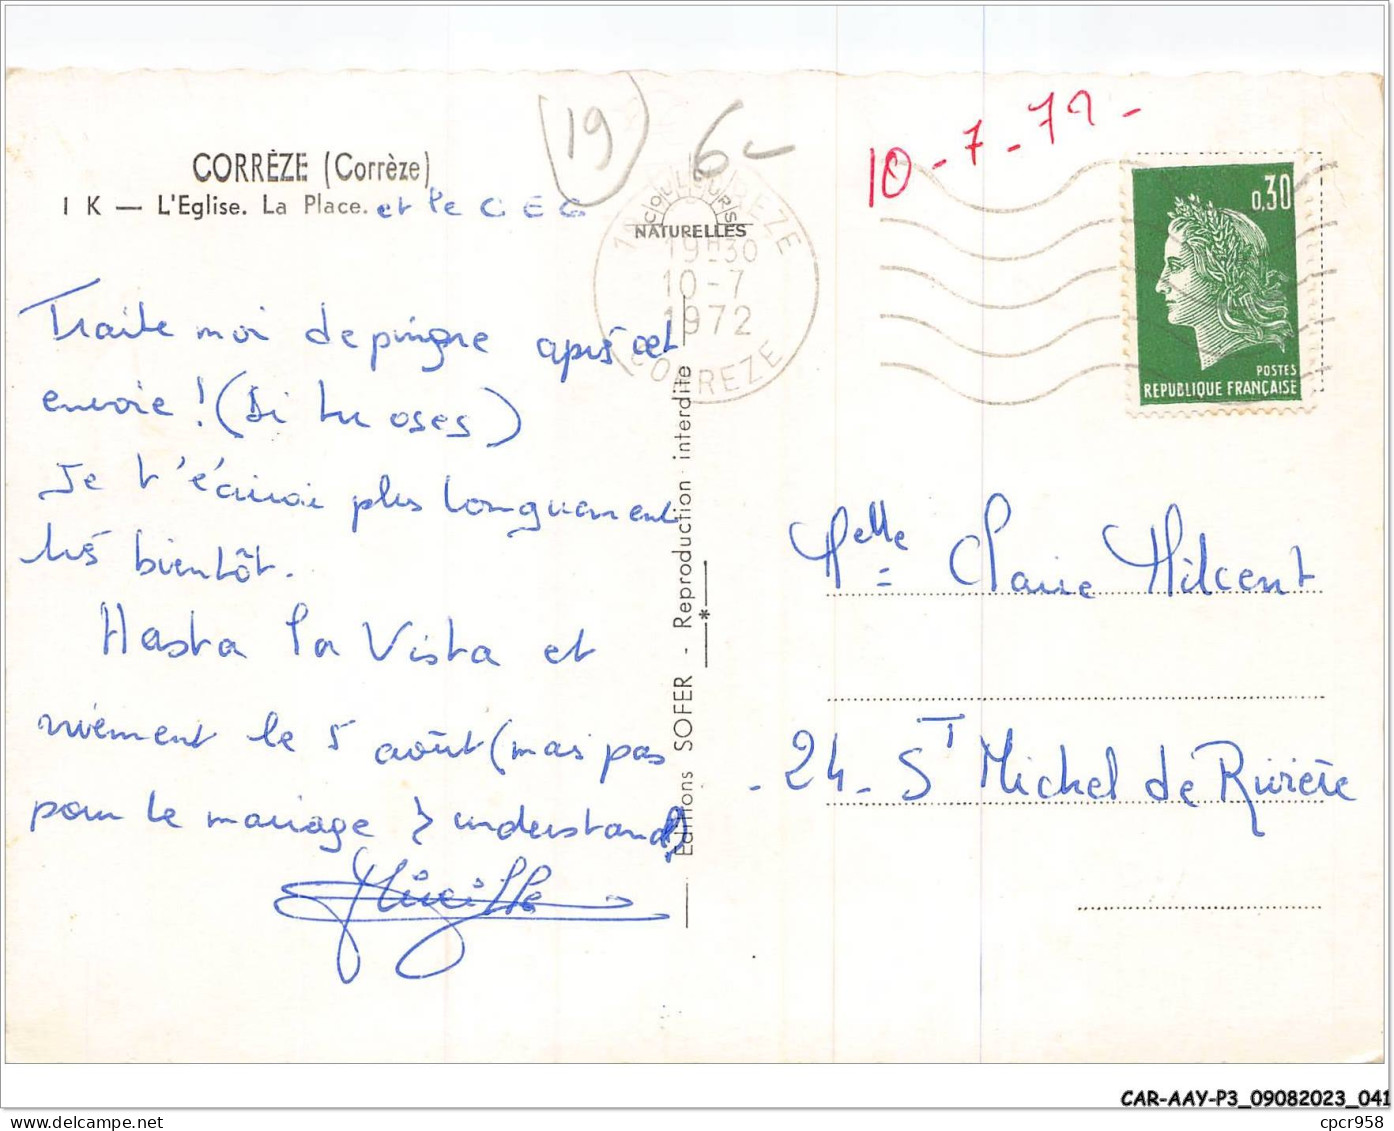 CORRÈZE (Corrèze)
1 K — L'Eglise. La Place. et le C E G
19
6-
10-7-72-
COULEURS
NATURELLES
19H30
10-7
1972
CORREZE
0,30
POSTES
REPUBLIQUE FRANÇAISE
Traite moi de pingre après cet
envoie ! (Si tu oses)
Je t'écrirai plus longuement
très bientôt.
Hasta la Vista et
vivement le 5 août (mais pas
pour le mariage ) understand)
Mireille
Editions SOFER - Reproduction interdite
Melle Claire Milcent
- 24 - ST Michel de Rivière
CAR-AAY-P3_09082023_041
cpcr958